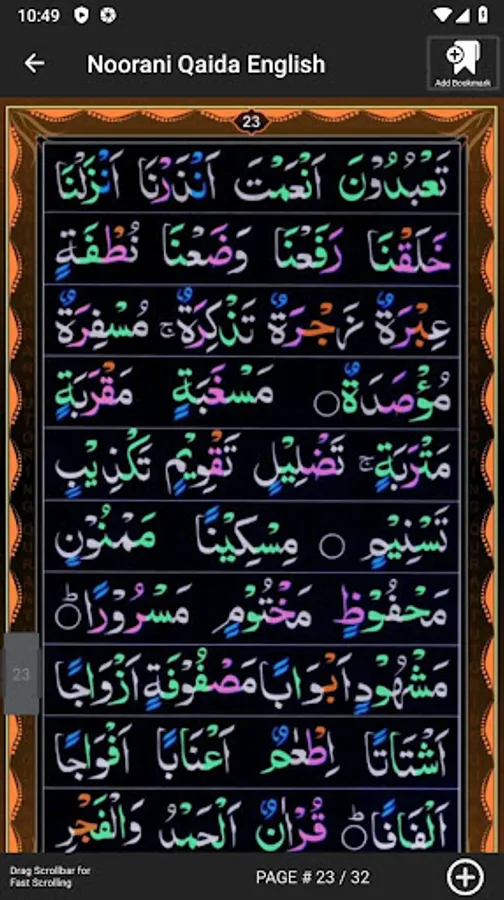 10:49
Noorani Qaida English
Add Bookmark
23
تَعْبُدُوْنَ اَنْعَمْتَ اَنْذَرْنَا اَنْزَلْنَا
خَلَقْنَا رَفَعْنَا وَضَعْنَا نُطْفَةٍ
عِبْرَةٌ زَجْرَةٌ تَذْكِرَةٌ ۚ مُسْفِرَةٌ
مُؤْصَدَةٌ ○ مَسْغَبَةٍ مَقْرَبَةٍ
مَتْرَبَةٍ ۚ تَضْلِيْلٍ تَقْوِيْمٍ تَكْذِيْبٍ
تَسْنِيْمٍ ○ مِسْكِيْنًا مَمْنُوْنٍ
مَحْفُوْظٍ مَخْتُوْمٍ مَسْرُوْرًا ؕ
مَشْهُوْدٍ اَبْوَابًا مَصْفُوْفَةٍ اَزْوَاجًا
اَشْتَاتًا اِطْعٰمٌ اَعْنَابًا اَفْوَاجًا
اَلْفَافًا ؕ قُرْاٰنٌ اَلْحَمْدُ وَالْفَجْرِ
23
Drag Scrollbar for
Fast Scrolling
PAGE # 23 / 32